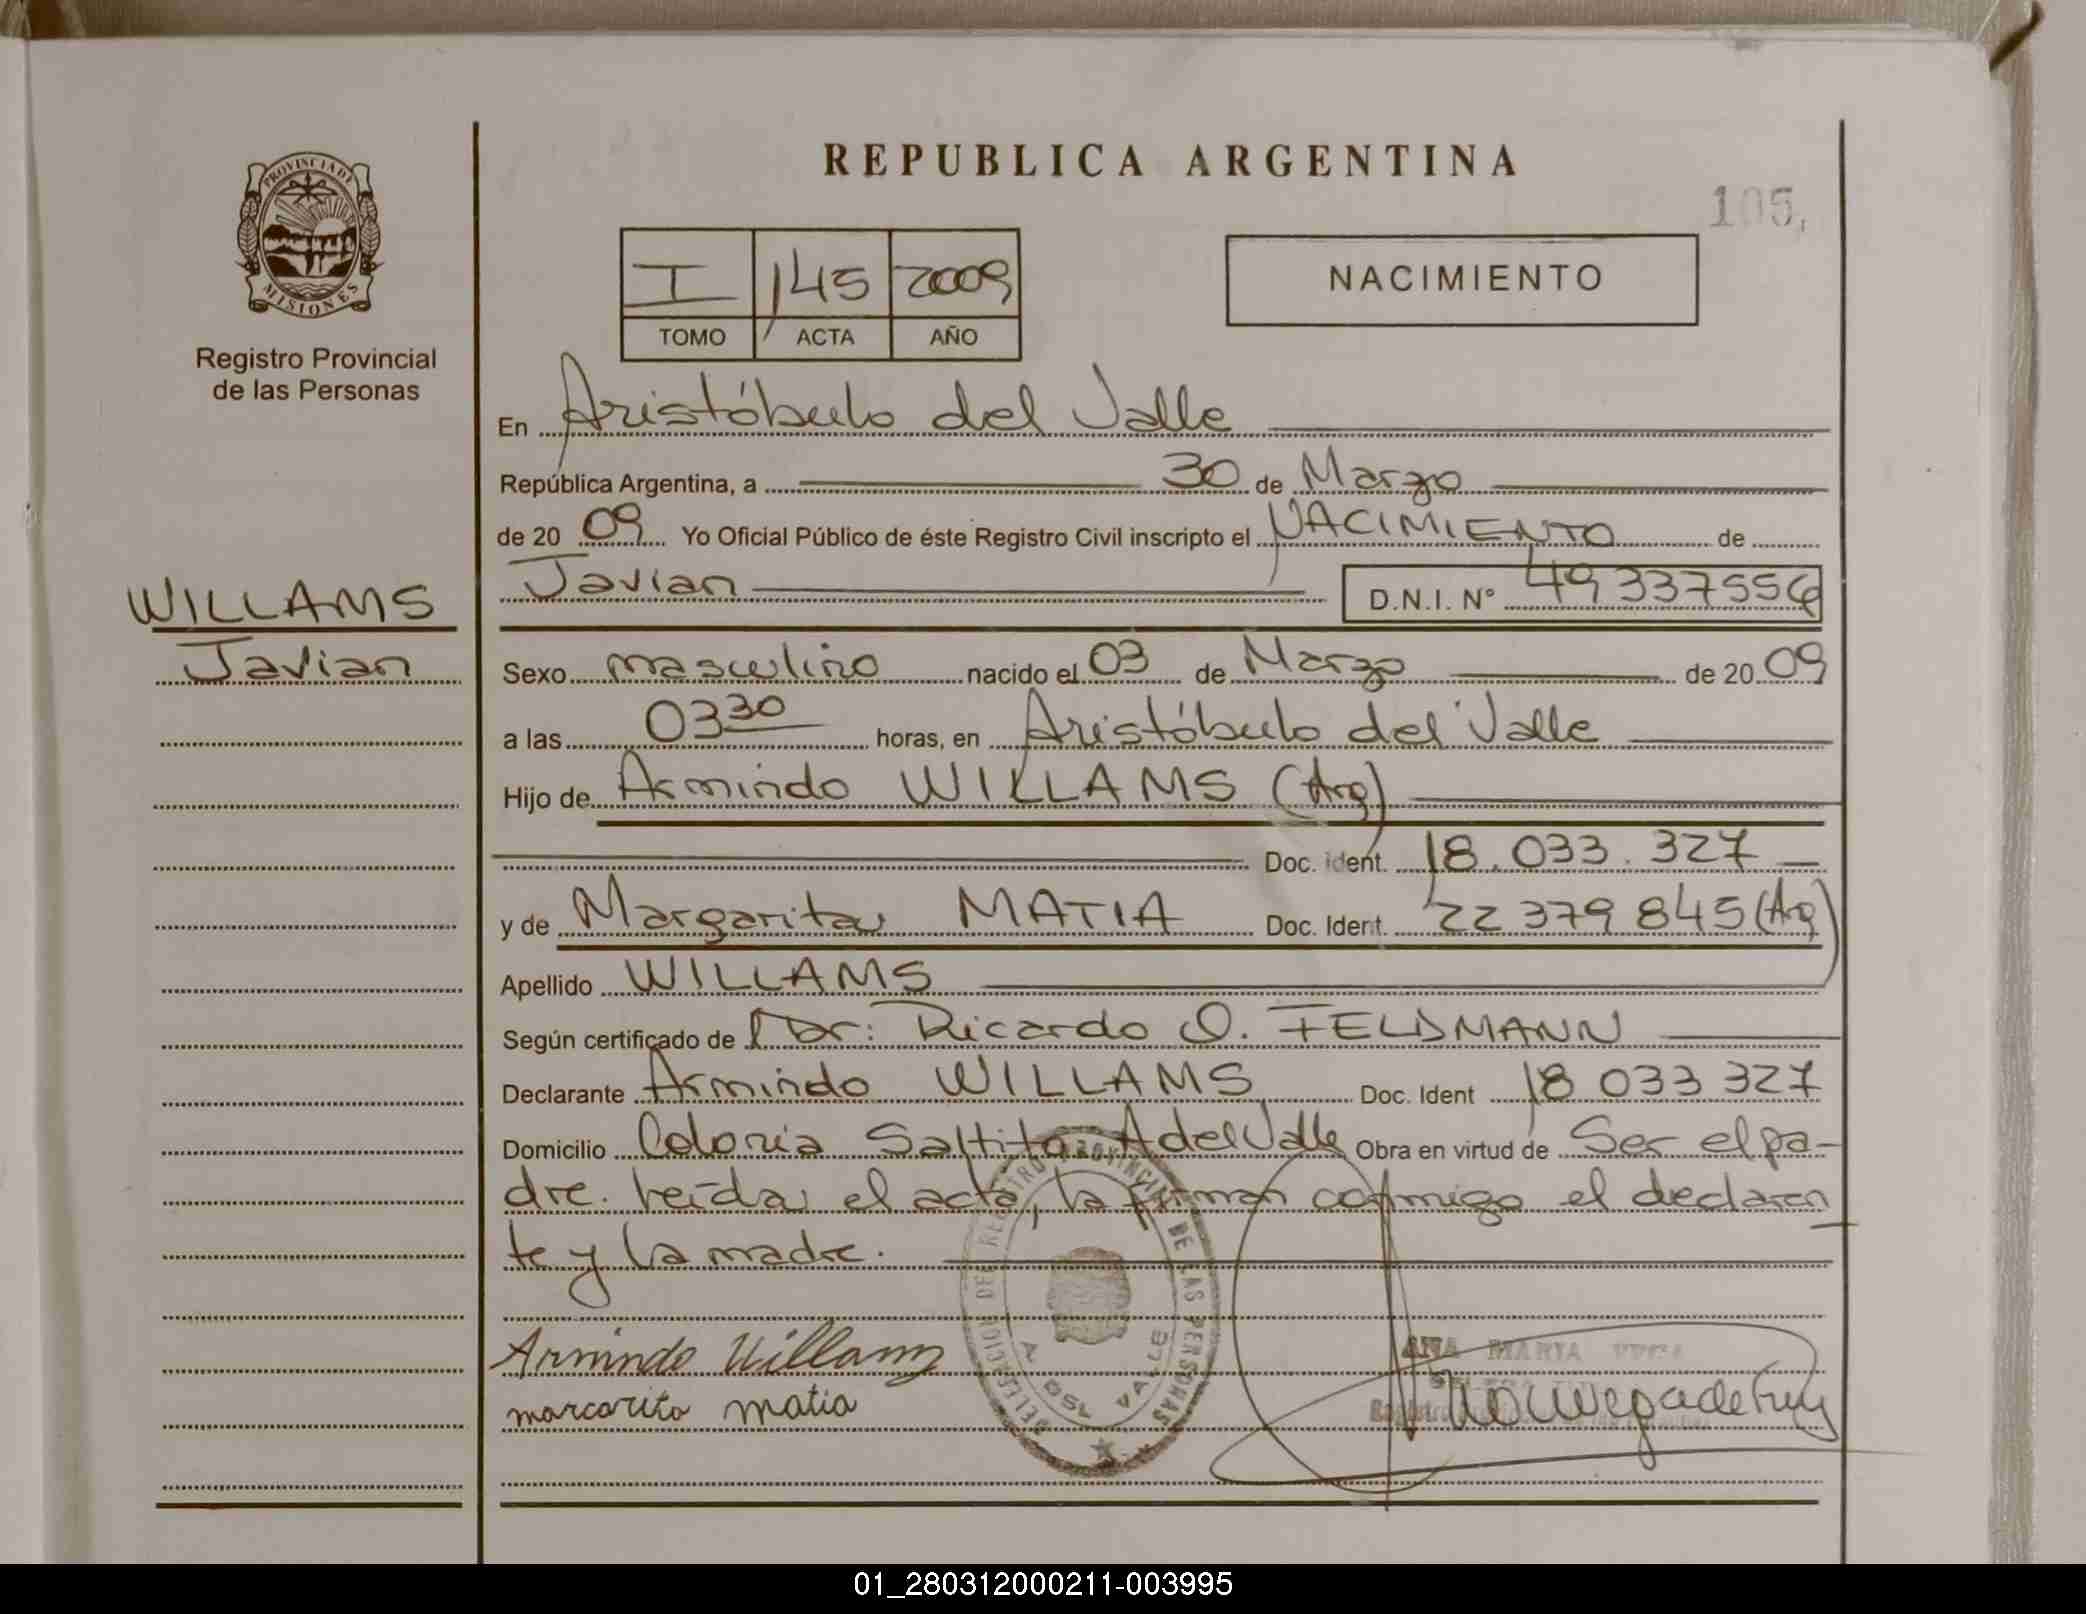 REPUBLICA ARGENTINA
105,
PROVINCIA DE
MISIONES
Registro Provincial
de las Personas
I 145 2009
TOMO ACTA AÑO
NACIMIENTO
En Aristóbulo del Valle
República Argentina, a 30 de Marzo
de 20 09 Yo Oficial Público de éste Registro Civil inscripto el NACIMIENTO de
Javian D.N.I. N° 49337556
WILLAMS
Javian
Sexo masculino nacido el 03 de Marzo de 20 09
a las 03 30 horas, en Aristóbulo del Valle
Hijo de Armindo WILLAMS (Arg)
Doc. ident. 18.033.327
y de Margarita MATIA Doc. Ident. 22 379 845 (Arg)
Apellido WILLAMS
Según certificado de Dr: Ricardo O. FELDMANN
Declarante Armindo WILLAMS Doc. Ident 18 033 327
Domicilio Colonia Saltito A del Valle Obra en virtud de Ser el pa-
dre. Leída el acta, la firman conmigo el declaran
te y la madre.
DELEGACION DEL REGISTRO PROVINCIAL DE LAS PERSONAS
A. DEL VALLE
Armindo Willams
margarita matia
ANA MARIA
Registro Provincial de las Personas
01_280312000211-003995